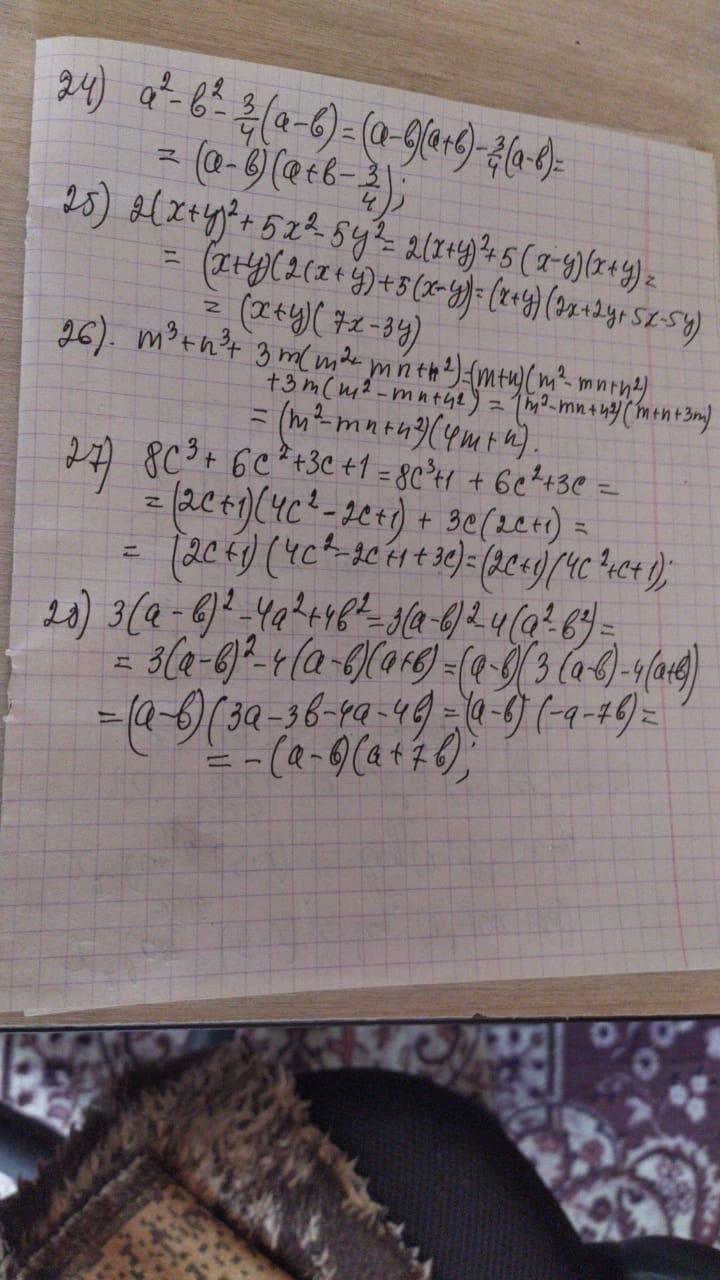 24) a² - в² - 3/4 (a-в) = (a-в)(a+в) - 3/4 (a-в) =
= (a-в)(a+в - 3/4);
25) 2(x+y)² + 5x² - 5y² = 2(x+y)² + 5(x-y)(x+y) =
= (x+y)(2(x+y) + 5(x-y)) = (x+y)(2x+2y+5x-5y)
= (x+y)(7x-3y)
26). m³+n³+ 3m(m²-mn+n²) = (m+n)(m²-mn+n²)
+3m(m²-mn+n²) = (m²-mn+n²)(m+n+3m)
= (m²-mn+n²)(4m+n).
27) 8c³ + 6c² + 3c + 1 = 8c³+1 + 6c²+3c =
= (2c+1)(4c²-2c+1) + 3c(2c+1) =
= (2c+1)(4c²-2c+1+3c) = (2c+1)(4c²+c+1);
28) 3(a-в)² - 4a² + 4в² = 3(a-в)² - 4(a²-в²) =
= 3(a-в)² - 4(a-в)(a+в) = (a-в)(3(a-в) - 4(a+в))
= (a-в)(3a-3в-4a-4в) = (a-в)(-a-7в) =
= -(a-в)(a+7в);